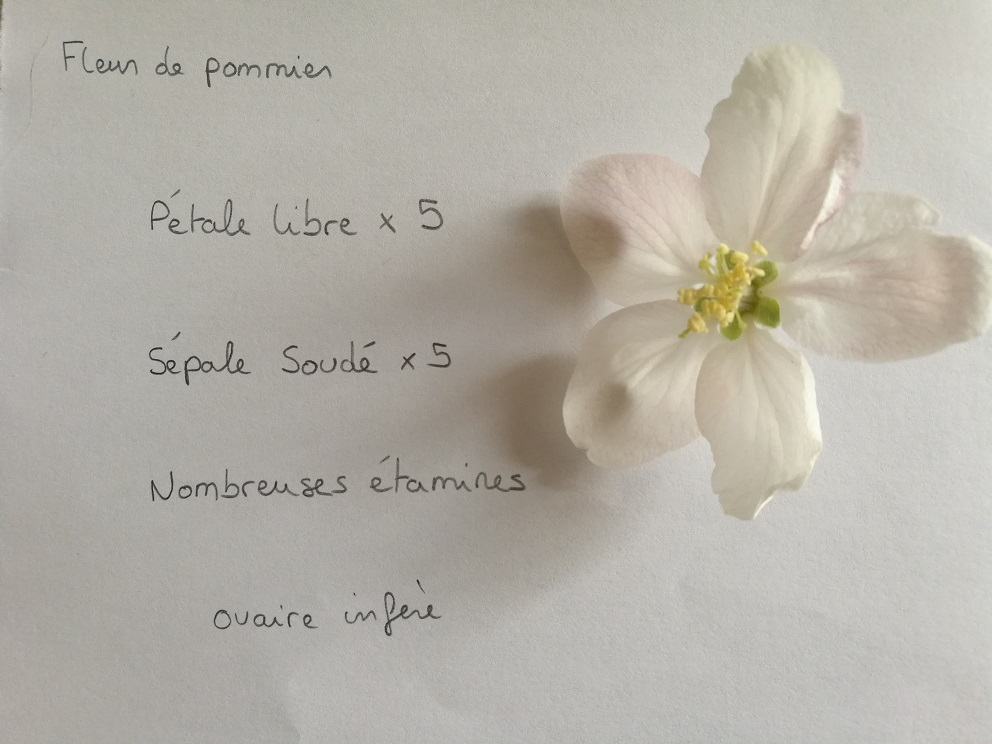 Fleur de pommier
Pétale libre x 5
Sépale Soudé x 5
Nombreuses étamines
ovaire infèrè